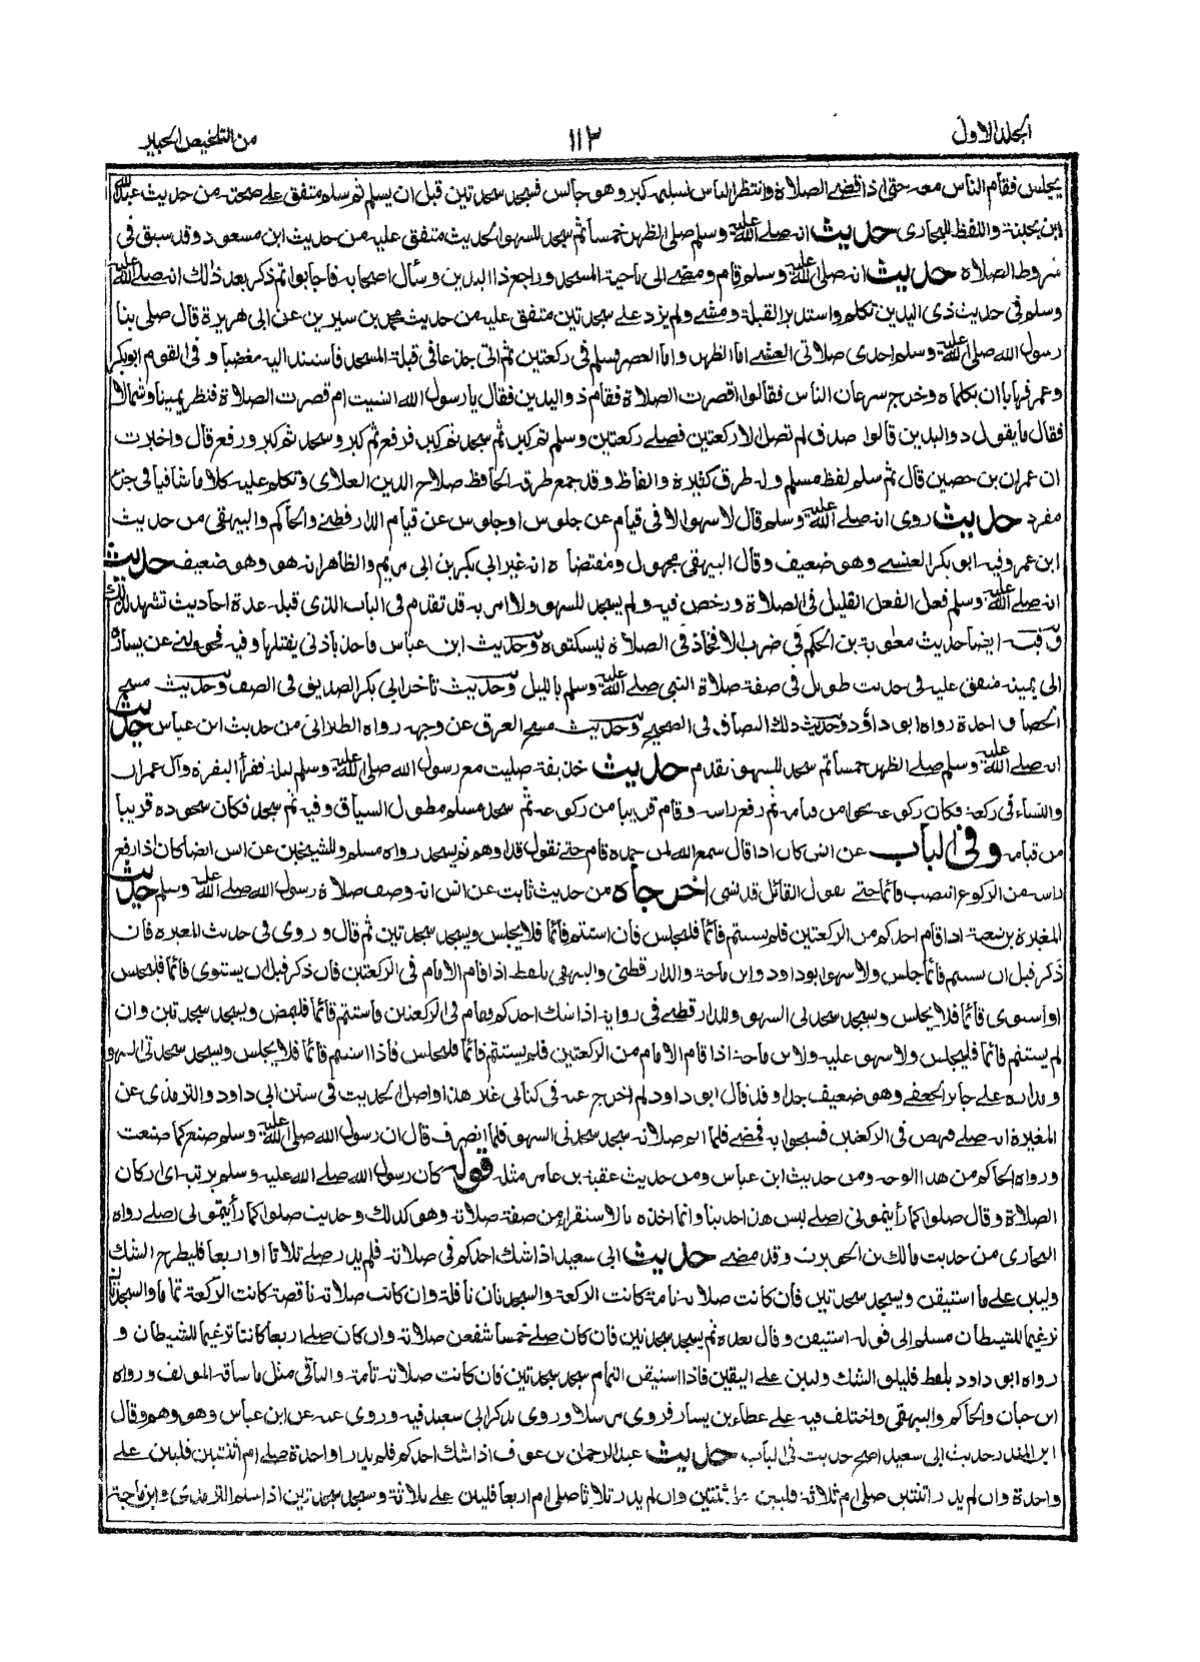 الجلد الاول
١١٢
من التلخيص الحبير
يجلس فقام الناس معه حتى اذا قضى الصلاة وانتظر الناس تسليمه كبر وهو جالس فسجد سجدتين قبل ان يسلم ثم سلم متفق على صحته من حديث عبد الله
ابن بحينة واللفظ للبخارى حديث انه صلى الله عليه وسلم صلى الظهر خمسا ثم سجد للسهو الحديث متفق عليه من حديث ابن مسعود وقد سبق فى
شروط الصلاة حديث انه صلى الله عليه وسلم قام ومضى الى ناحية المسجد وراجع ذا اليدين وسأل اصحابه فاجابوا ثم ذكر بعد ذلك انه صلى الله عليه
وسلم فى حديث ذى اليدين تكلم واستدبر القبلة ومشى ولم يزد على سجدتين متفق عليه من حديث محمد بن سيرين عن ابى هريرة قال صلى بنا
رسول الله صلى الله عليه وسلم احدى صلاتى العشى اما الظهر واما العصر فسلم فى ركعتين ثم اتى جذعا فى قبلة المسجد فاستند اليه مغضبا وفى القوم ابو بكر
وعمر فهابا ان يكلماه وخرج سرعان الناس فقالوا اقصرت الصلاة فقام ذو اليدين فقال يا رسول الله انسيت ام قصرت الصلاة فنظر يمينا وشمالا
فقال ما يقول ذو اليدين قالوا صدق لم تصل الا ركعتين فصلى ركعتين وسلم ثم كبر ثم سجد ثم كبر فرفع ثم كبر وسجد ثم كبر ورفع قال واخبرت
ان عمران بن حصين قال ثم سلم لفظ مسلم وله طرق كثيرة والفاظ وقد جمع طرقه الحافظ صلاح الدين العلاى وتكلم عليه كلاما شافيا فى جزء
مفرد حديث روى انه صلى الله عليه وسلم قال لا سهو الا فى قيام عن جلوس او جلوس عن قيام الدارقطنى والحاكم والبيهقى من حديث
ابن عمر وفيه ابو بكر العنسى وهو ضعيف وقال البيهقى مجهول ومقتضاه انه غير ابى بكر بن ابى مريم والظاهر انه هو وهو ضعيف حديث
انه صلى الله عليه وسلم فعل الفعل القليل فى الصلاة ورخص فيه ولم يسجد للسهو ولا امر به قد تقدم فى الباب الذى قبله عدة احاديث تشهد لذلك
وفيه ايضا حديث معاوية بن الحكم فى ضرب الافخاذ فى الصلاة ليسكتوه وحديث ابن عباس فاخذ باذنى يفتلها وفيه فحولنى عن يساره
الى يمينه متفق عليه فى حديث طويل فى صفة صلاة النبى صلى الله عليه وسلم بالليل وحديث تأخر ابى بكر الصديق فى الصف وحديث مسح
الحصا واحدة رواه ابو داؤد وحديث دلك البصاق فى الصحيح وحديث مسح العرق عن وجهه رواه الطبرانى من حديث ابن عباس حديث
انه صلى الله عليه وسلم صلى الظهر خمسا ثم سجد للسهو تقدم حديث حذيفة صليت مع رسول الله صلى الله عليه وسلم ليلة فقرأ البقرة وآل عمران
والنساء فى ركعة فكان ركوعه نحوا من قيامه ثم رفع راسه وقام قريبا من ركوعه ثم سجد مسلم مطول السياق وفيه ثم سجد فكان سجوده قريبا
من قيامه وفى الباب عن انس كان اذا قال سمع الله لمن حمده قام حتى نقول قد اوهم ثم يسجد رواه مسلم وللشيخين عن انس ايضا كان اذا رفع
راسه من الركوع انتصب قائما حتى يقول القائل قد نسى اخرجاه من حديث ثابت عن انس انه وصف صلاة رسول الله صلى الله عليه وسلم حديث
المغيرة بن شعبة اذا قام احدكم من الركعتين فلم يستتم قائما فليجلس فان استتم قائما فلا يجلس ويسجد سجدتين ثم قال وروى فى حديث المغيرة فان
ذكر قبل ان يستتم قائما جلس ولا سهو ابو داود وابن ماجة والدارقطنى والبيهقى بلفظ اذا قام الامام فى الركعتين فان ذكر قبل ان يستوى قائما فليجلس
او استوى قائما فلا يجلس ويسجد سجدتى السهو وللدارقطنى فى رواية اذا شك احدكم فقام فى الركعتين فاستتم قائما فليمض ويسجد سجدتين وان
لم يستتم قائما فليجلس ولا سهو عليه ولابن ماجة اذا قام الامام من الركعتين فلم يستتم قائما فليجلس فاذا استتم قائما فلا يجلس ويسجد سجدتى السهو
ومداره على جابر الجعفى وهو ضعيف جدا وقد قال ابو داود لم اخرج عنه فى كتابى غير هذا واصل الحديث فى سنن ابى داود والترمذى عن
المغيرة انه صلى فنهض فى الركعتين فسبحوا به فمضى فلما اتم صلاته سجد سجدتى السهو فلما انصرف قال ان رسول الله صلى الله عليه وسلم صنع كما صنعت
ورواه الحاكم من هذا الوجه ومن حديث ابن عباس ومن حديث عقبة بن عامر مثله قوله كان رسول الله صلى الله عليه وسلم يرتب اى اركان
الصلاة وقال صلوا كما رأيتمونى اصلى ليس هذا حديثا وانما اخذه بالاستقراء من صفة صلاته وهو كذلك وحديث صلوا كما رأيتمونى اصلى رواه
البخارى من حديث مالك بن الحويرث وقد مضى حديث ابى سعيد اذا شك احدكم فى صلاته فلم يدر صلى ثلاثا او اربعا فليطرح الشك
وليبن على ما استيقن ويسجد سجدتين فان كانت صلاته تامة كانت الركعة والسجدتان نافلة وان كانت صلاته ناقصة كانت الركعة تماما والسجدتان
ترغيما للشيطان مسلم الى قوله استيقن وقال بعده ثم يسجد سجدتين فان كان صلى خمسا شفعن صلاته وان كان صلى اربعا كانتا ترغيما للشيطان و
رواه ابو داود بلفظ فليلق الشك وليبن على اليقين فاذا استيقن التمام سجد سجدتين فان كانت صلاته تامة والباقى مثل ما ساقه المولف ورواه
ابن حبان والحاكم والبيهقى واختلف فيه على عطاء بن يسار فروى مرسلا وروى بذكر ابى سعيد فيه وروى عنه عن ابن عباس وهو وهم وقال
ابن المنذر حديث ابى سعيد اصح حديث فى الباب حديث عبد الرحمان بن عوف اذا شك احدكم فلم يدر اواحدة صلى ام اثنتين فليبن على
واحدة وان لم يدر اثنتين صلى ام ثلاثة فليبن على اثنتين وان لم يدر ثلاثا صلى ام اربعا فليبن على ثلاثة وسجد سجدتين اذا سلم الترمذى وابن ماجة